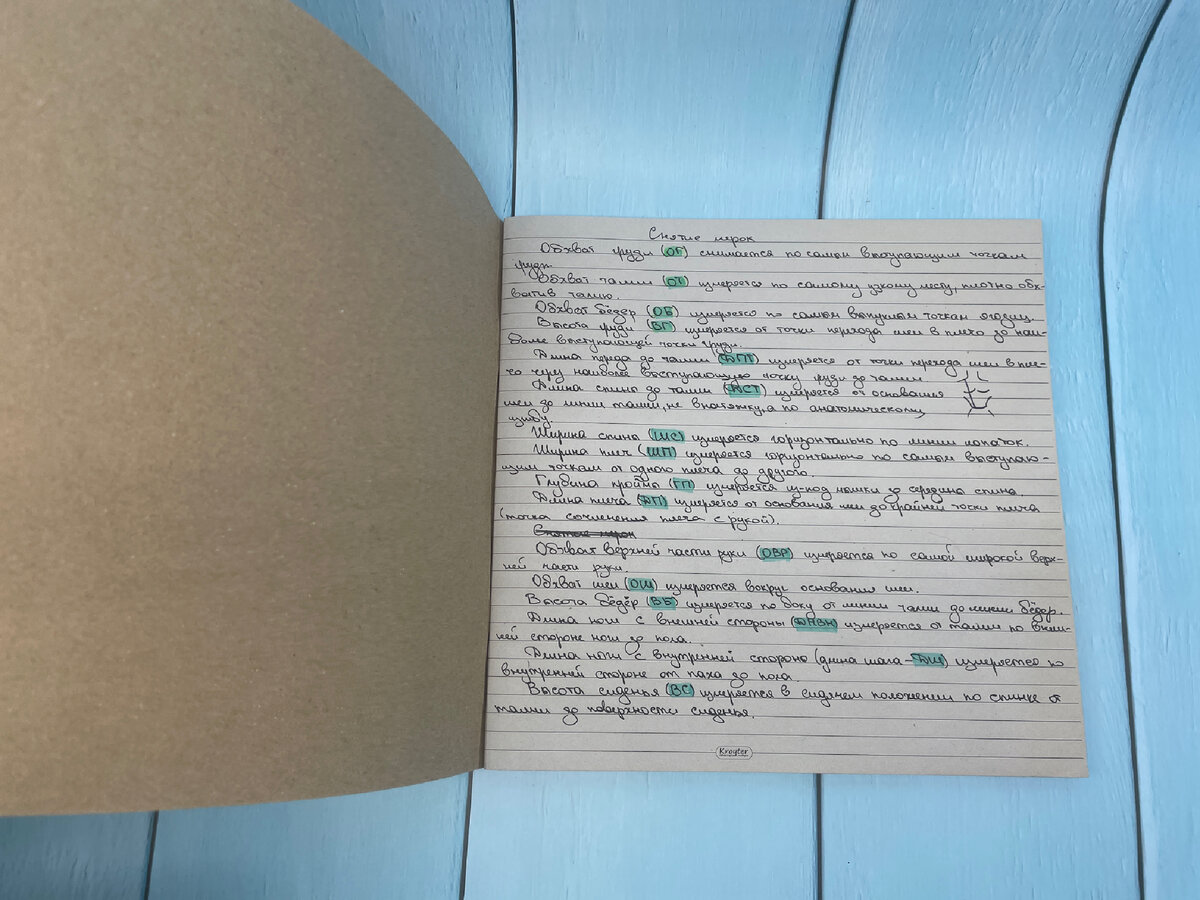 Снятие мерок
Обхват груди (ОГ) снимается по самым выступающим точкам
груди.
Обхват талии (ОТ) измеряется по самому узкому месту, плотно обх-
ватив талию.
Обхват бёдер (ОБ) измеряется по самым выпуклым точкам ягодиц.
Высота груди (ВГ) измеряется от точки перехода шеи в плечо до наи-
более выступающей точки груди.
Длина переда до талии (ДПТ) измеряется от точки перехода шеи в пле-
чо через наиболее выступающую точку груди до талии
Длина спины до талии (ДСТ) измеряется от основания
шеи до линии талии, не внатяжку, а по анатомическому
изгибу.
Ширина спины (ШС) измеряется горизонтально по линии лопаток.
Ширина плеч (ШП) измеряется горизонтально по самым выступаю-
щим точкам от одного плеча до другого.
Глубина проймы (ГП) измеряется из-под мышки до середины спины.
Длина плеча (ДП) измеряется от основания шеи до крайней точки плеча
(точка сочленения плеча с рукой).
Снятие мерок
Обхват верхней части руки (ОВР) измеряется по самой широкой верх-
ней части руки.
Обхват шеи (ОШ) измеряется вокруг основания шеи.
Высота бёдер (ВБ) измеряется по боку от линии талии до линии бёдер.
Длина ноги с внешней стороны (ДНВН) измеряется от талии по внеш-
ней стороне ноги до пола.
Длина ноги с внутренней стороны (длина шага - ДШ) измеряется по
внутренней стороне от паха до пола.
Высота сиденья (ВС) измеряется в сидячем положении по спинке от
талии до поверхности сиденья.
Kroyter